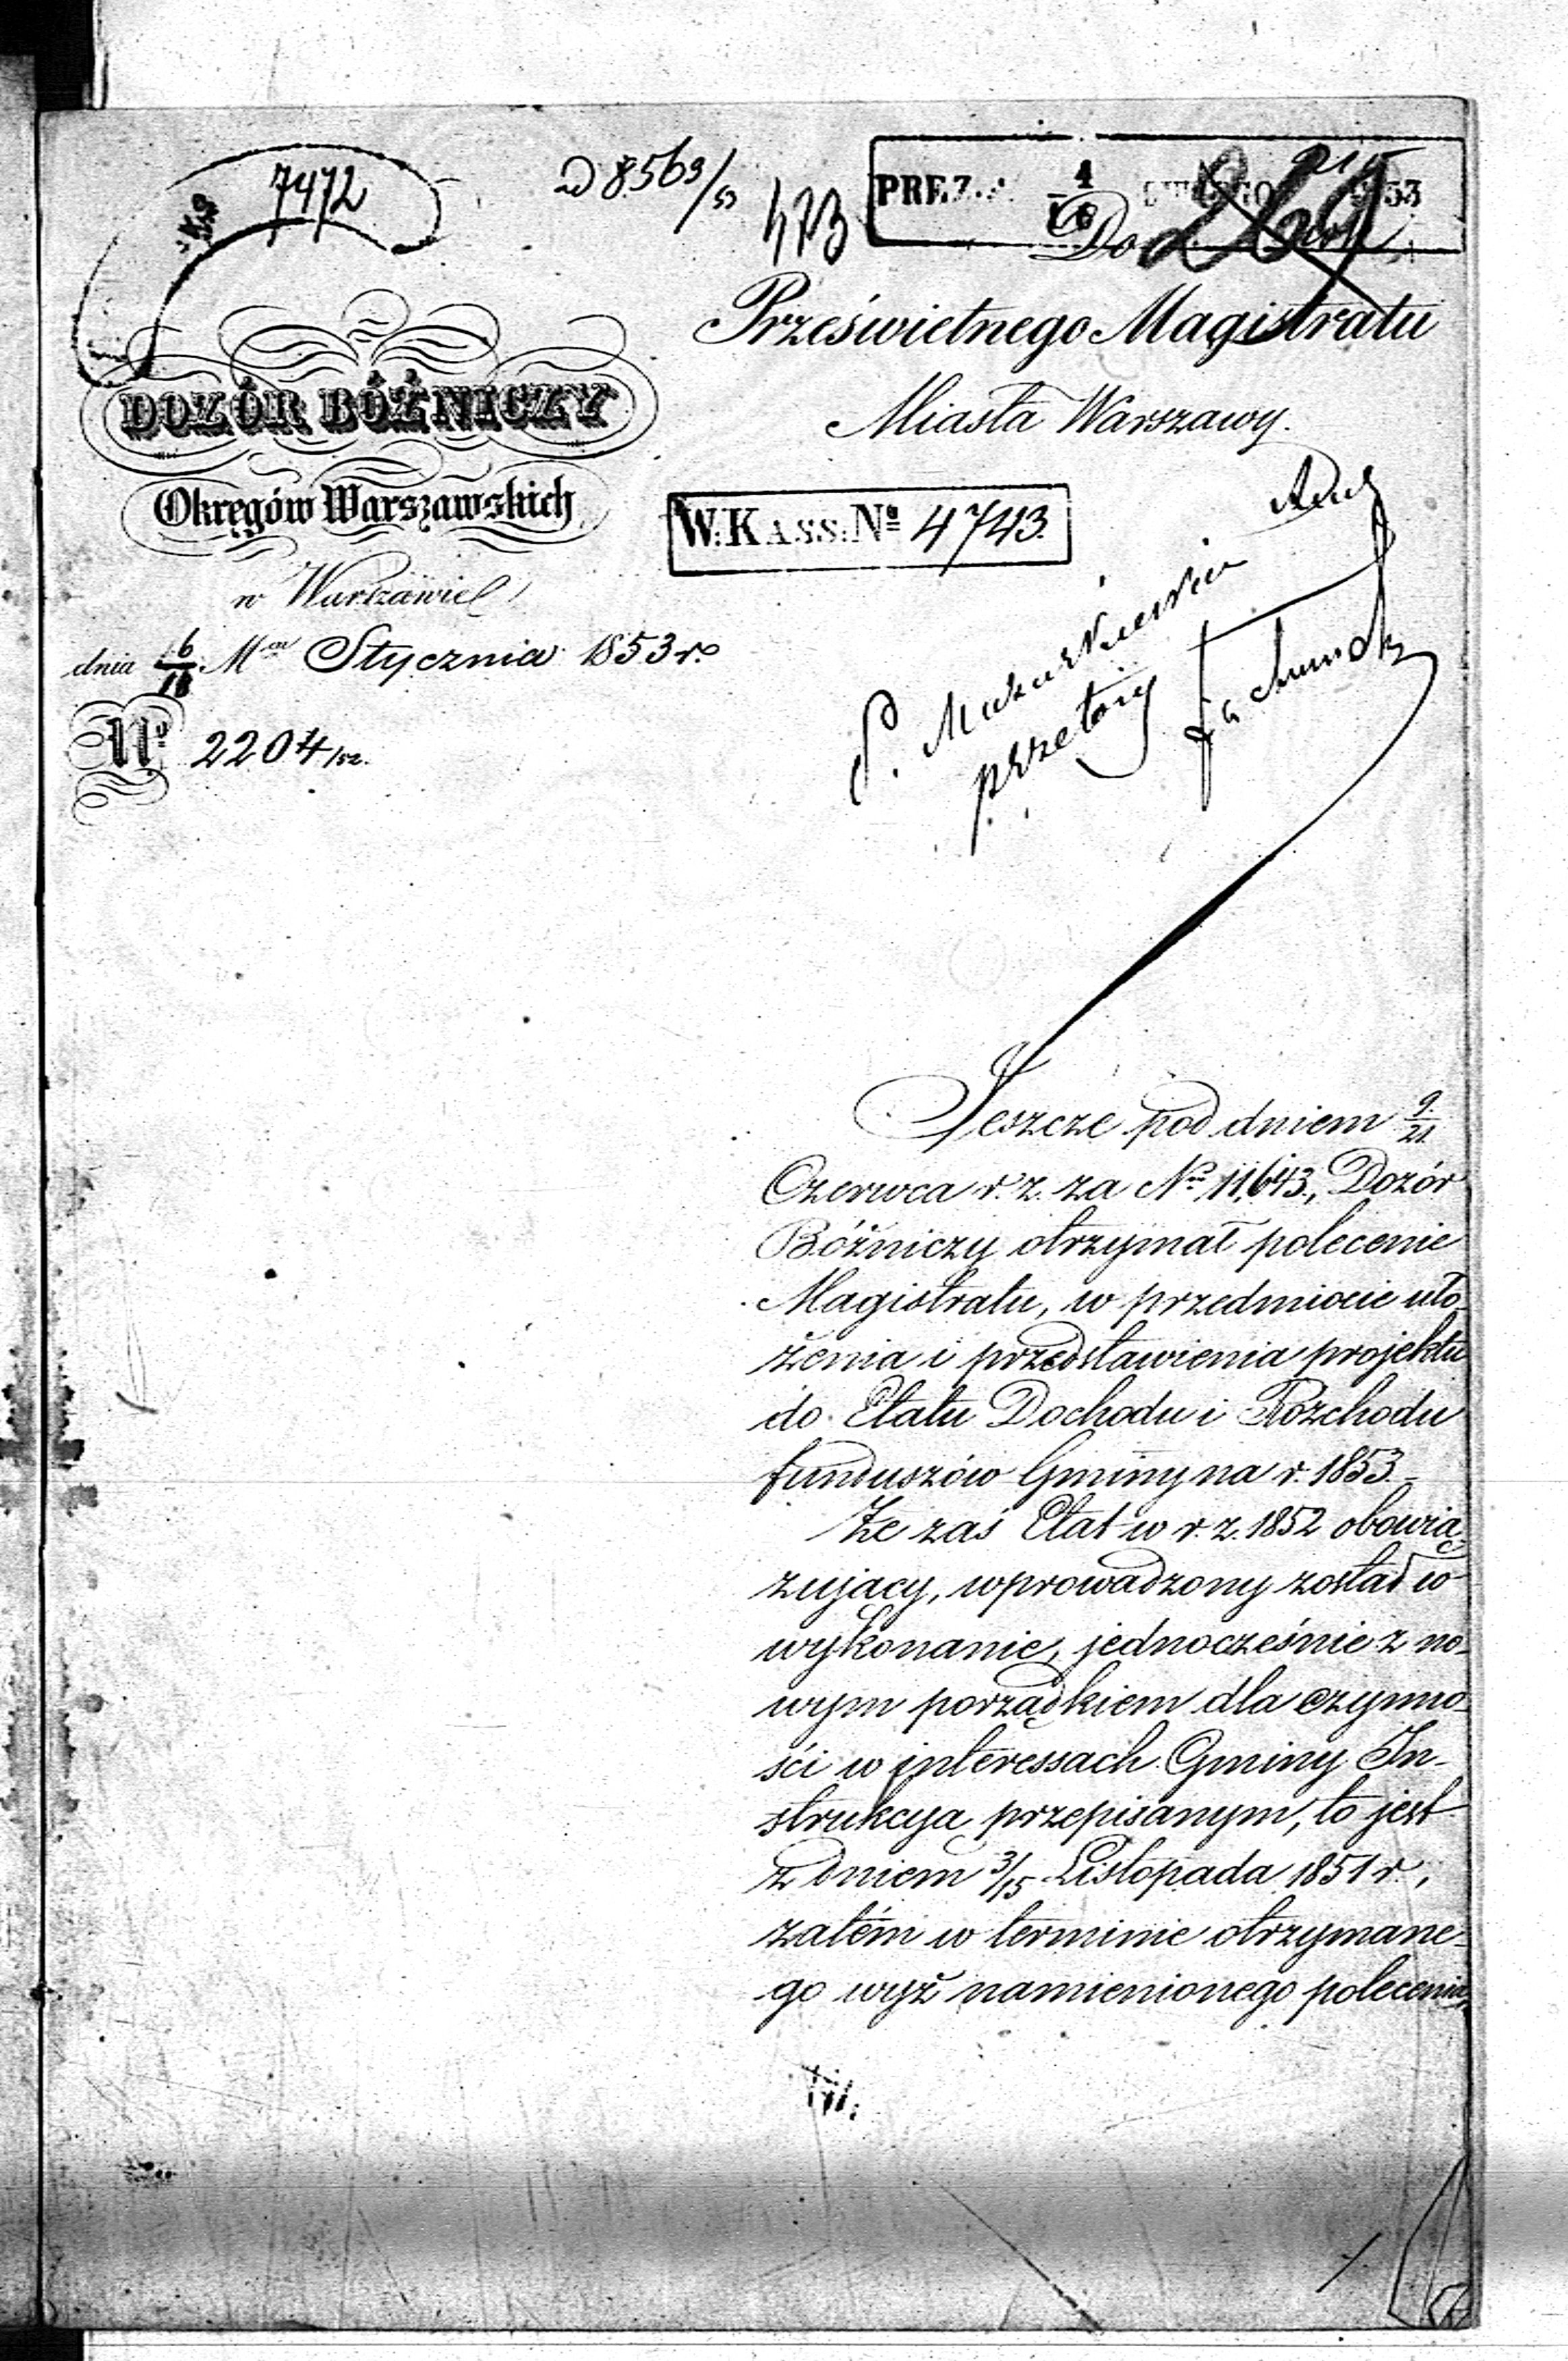 7472
8569/53
473
PREZ. 4/16 1853
215
269
Do
Prześwietnego Magistratu
Miasta Warszawy.
DOZÓR BÓŻNICZY
Okręgów Warszawskich
w Warszawie
dnia 6/18 Mca Stycznia 1853 r.
No 2204/52.
W: KASS: No 4743.
P.
przełoży
Jeszcze pod dniem 9/21
Czerwca r. z. za No 11,643., Dozór
Bóżniczy otrzymał polecenie
Magistratu, w przedmiocie uło-
żenia i przedstawienia projektu
do Etatu Dochodu i Rozchodu
funduszów Gminy na r. 1853.-
Że zaś Etat w r. z. 1852 obowią-
zujący, wprowadzony został w
wykonanie, jednocześnie z no-
wym porządkiem dla czynno-
ści w interessach Gminy In-
strukcyą przepisanym, to jest
z dniem 3/15 Listopada 1851 r.,
zatém w terminie otrzymane-
go wyż namienionego polecenia,